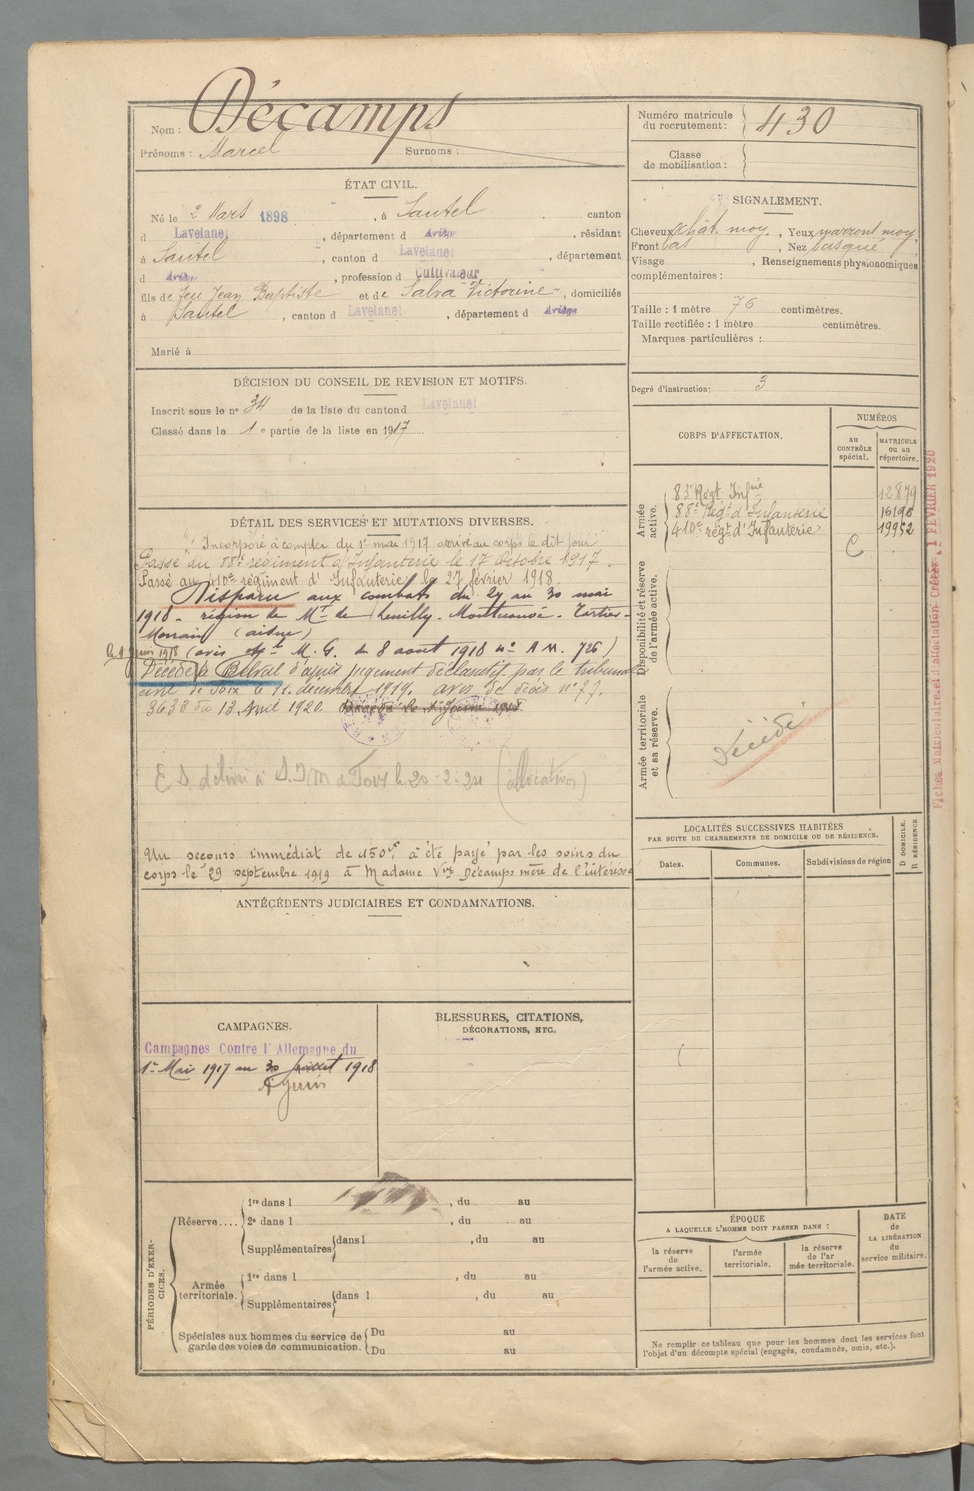 Nom : Décamps
Prénoms : Marcel Surnoms :
Numéro matricule du recrutement : 430
Classe de mobilisation :
ÉTAT CIVIL.
Né le 2 Mars 1898, à Sautel canton
d Lavelanet, département d Ariège, résidant
à Sautel, canton d Lavelanet, département
d Ariège, profession d Cultivateur
fils de feu Jean Baptiste et de Salva Victorine, domiciliés
à Sautel, canton d Lavelanet, département d Ariège
Marié à
SIGNALEMENT.
Cheveux chât. moy., Yeux marront moy.
Front bas, Nez busqué
Visage, Renseignements physionomiques
complémentaires :
Taille : 1 mètre 76 centimètres.
Taille rectifiée : 1 mètre centimètres.
Marques particulières :
Degré d'instruction : 3
DÉCISION DU CONSEIL DE REVISION ET MOTIFS.
Inscrit sous le n° 34 de la liste du canton d Lavelanet
Classé dans la 1e partie de la liste en 1917
CORPS D'AFFECTATION.
NUMÉROS
au CONTRÔLE spécial.
MATRICULE ou au répertoire.
Armée active.
83e Régt Infie 12879
88e Régt d'Infanterie 16198
410e régt d'Infanterie 19952
C
Disponibilité et réserve de l'armée active.
Armée territoriale et sa réserve.
Décédé
DÉTAIL DES SERVICES ET MUTATIONS DIVERSES.
Incorporé à compter du 1er mai 1917 arrivé au corps le dit jour
Passé au 88e régiment d'Infanterie le 17 Octobre 1917.
Passé au 410e régiment d'Infanterie le 27 février 1918.
Disparu aux combats du 29 au 30 mai
1918 - région de Mt de Leuilly - Montécouvé - Tartiers -
Morsain (aisne)
le 1 juin 1918 (avis M. G. du 8 aout 1918 n° A M. 726)
Décédé à Bétral d'après jugement déclaratif par le tribunal
civil de Foix le 11 décembre 1919. avis de décès n° 77.
3638 du 13 Avril 1920.
E S délivré à S.I.M à Foix le 20-2-24 (allocation)
Un secours immédiat de 150f, à été payé par les soins du
corps le 29 septembre 1919 à Madame Vve Décamps mère de l'intéressé
LOCALITÉS SUCCESSIVES HABITÉES
PAR SUITE DE CHANGEMENTS DE DOMICILE OU DE RÉSIDENCE.
Dates. Communes. Subdivisions de région
D DOMICILE.
R RÉSIDENCE
ANTÉCÉDENTS JUDICIAIRES ET CONDAMNATIONS.
CAMPAGNES.
Campagnes Contre l'Allemagne du
1er Mai 1917 au 30 juillet 1918
1 juin
BLESSURES, CITATIONS,
DÉCORATIONS, ETC.
PÉRIODES D'EXERCICES.
Réserve....
1re dans l , du au
2e dans l , du au
Supplémentaires dans l , du au
Armée territoriale.
1re dans l , du au
Supplémentaires dans l , du au
Spéciales aux hommes du service de garde des voies de communication.
Du au
Du au
ÉPOQUE
A LAQUELLE L'HOMME DOIT PASSER DANS :
la réserve de l'armée active.
l'armée territoriale.
la réserve de l'armée territoriale.
DATE de LA LIBÉRATION du service militaire.
Ne remplir ce tableau que pour les hommes dont les services font
l'objet d'un décompte spécial (engagés, condamnés, omis, etc.).